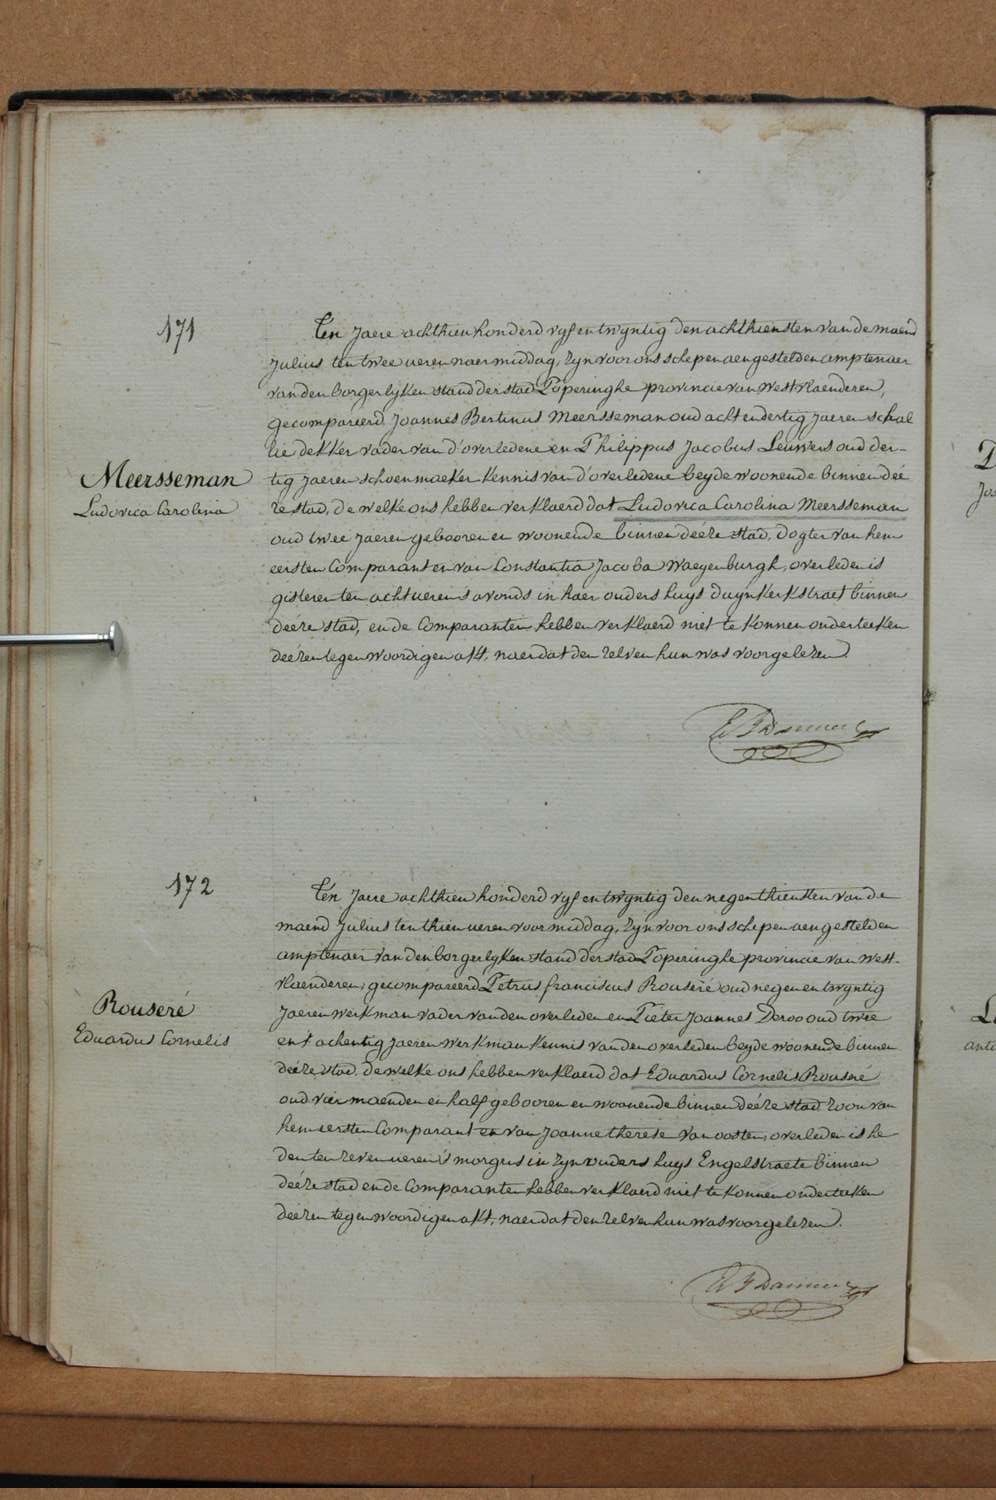 171
Ten Jaere achthien honderd vyf en twyntig den achthiensten van de maend
Julius ten twee ueren naermiddag, zyn voor ons schepen aengestelden amptenaer
van den borgerlyken stand der stad Poperinghe provincie van Westvlaenderen,
gecompareerd Joannes Bertinus Meersseman oud acht en dertig Jaeren schal
lie dekker vader van d'overledene en Philippus Jacobus Leuwers oud der-
tig Jaeren schoenmaeker kennis van d'overledene beyde woonende binnen deé
Meersseman
Ludovica Carolina
ze stad, de welke ons hebben verklaerd dat Ludovica Carolina Meersseman
oud twee Jaeren gebooren en woonende binnen deéze stad, dogter van hem
eersten Comparant en van Constantia Jacoba Waegenburgh, overleden is
gisteren ten acht ueren s'avonds in haer ouders huys duynkerkstraet binnen
deéze stad, en de Comparanten hebben verklaerd niet te konnen onderteeken
deézen tegenwoordigen akt, naer dat den zelven hun was voorgelezen.
172
Ten Jaere achthien honderd vyf en twyntig den negenthiensten van de
maend Julius ten thien ueren voormiddag, zyn voor ons schepen aengestelden
amptenaer van den borgerlyken stand der stad Poperinghe provincie van West-
vlaenderen, gecompareerd Petrus franciscus Rouseré oud negen en twyntig
Jaeren werkman vader van den overleden en Pieter Joannes Deroo oud twee
en t'achentig Jaeren werkman kennis van den overleden beyde woonende binnen
Rouseré
Eduardus Cornelis
deéze stad, de welke ons hebben verklaerd dat Eduardus Cornelis Rouseré
oud vier maenden en half gebooren en woonende binnen deéze stad zoon van
hem eersten Comparant en van Joanne therese van oosten, overleden is he
den ten zeven ueren s'morgens in zyn ouders huys Engelstraete binnen
deéze stad en de Comparanten hebben verklaerd niet te konnen onderteeken
deézen tegenwoordigen akt, naer dat den zelven hun was voorgelezen.